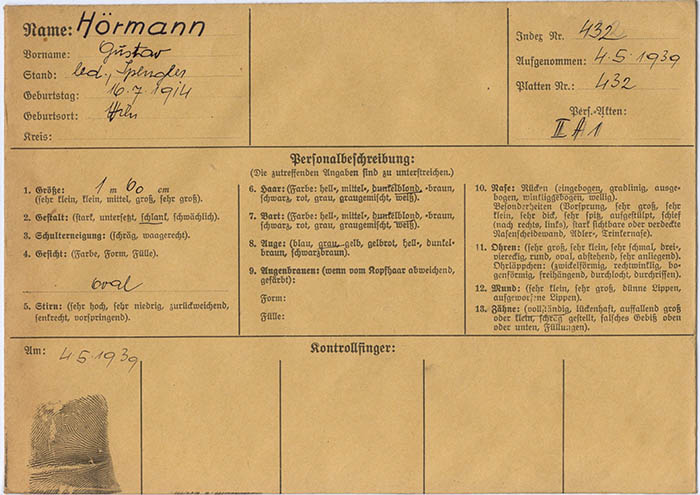 Name: Hörmann
Vorname: Gustav
Stand: led., Spengler
Geburtstag: 16.7.1914
Geburtsort:
Kreis:
Index Nr. 432
Aufgenommen: 4.5.1939
Platten Nr.: 432
Pers.-Akten:
II A 1
Personalbeschreibung:
(Die zutreffenden Angaben sind zu unterstreichen.)
1. Größe: 1 m 60 cm
(sehr klein, klein, mittel, groß, sehr groß).
2. Gestalt: (stark, untersetzt, schlank, schwächlich).
3. Schulterneigung: (schräg, waagerecht).
4. Gesicht: (Farbe, Form, Fülle).
oval
5. Stirn: (sehr hoch, sehr niedrig, zurückweichend,
senkrecht, vorspringend).
6. Haar: (Farbe: hell-, mittel-, dunkelblond, -braun,
schwarz, rot, grau, graugemischt, weiß).
7. Bart: (Farbe: hell-, mittel-, dunkelblond, -braun,
schwarz, rot, grau, graugemischt, weiß).
8. Auge: (blau, grau, gelb, gelbrot, hell-, dunkel-
braun, schwarzbraun).
9. Augenbrauen: (wenn vom Kopfhaar abweichend,
gefärbt):
Form:
Fülle:
10. Nase: Rücken (eingebogen, gradlinig, ausge-
bogen, winkliggebogen, wellig).
Besonderheiten (Vorsprung, sehr groß, sehr
klein, sehr dick, sehr spitz, aufgestülpt, schief
(nach rechts, links), stark sichtbare oder verdeckte
Nasenscheidewand, Adler-, Trinkernase).
11. Ohren: (sehr groß, sehr klein, sehr schmal, drei-,
viereckig, rund, oval, abstehend, sehr anliegend).
Ohrläppchen: (zwickelförmig, rechtwinklig, bo-
genförmig, freihängend, durchlocht, durchrissen).
12. Mund: (sehr klein, sehr groß, dünne Lippen,
aufgeworfene Lippen).
13. Zähne: (vollständig, lückenhaft, auffallend groß
oder klein, schräg gestellt, falsches Gebiß oben
oder unten, Füllungen).
Am: 4.5.1939
Kontrollfinger: